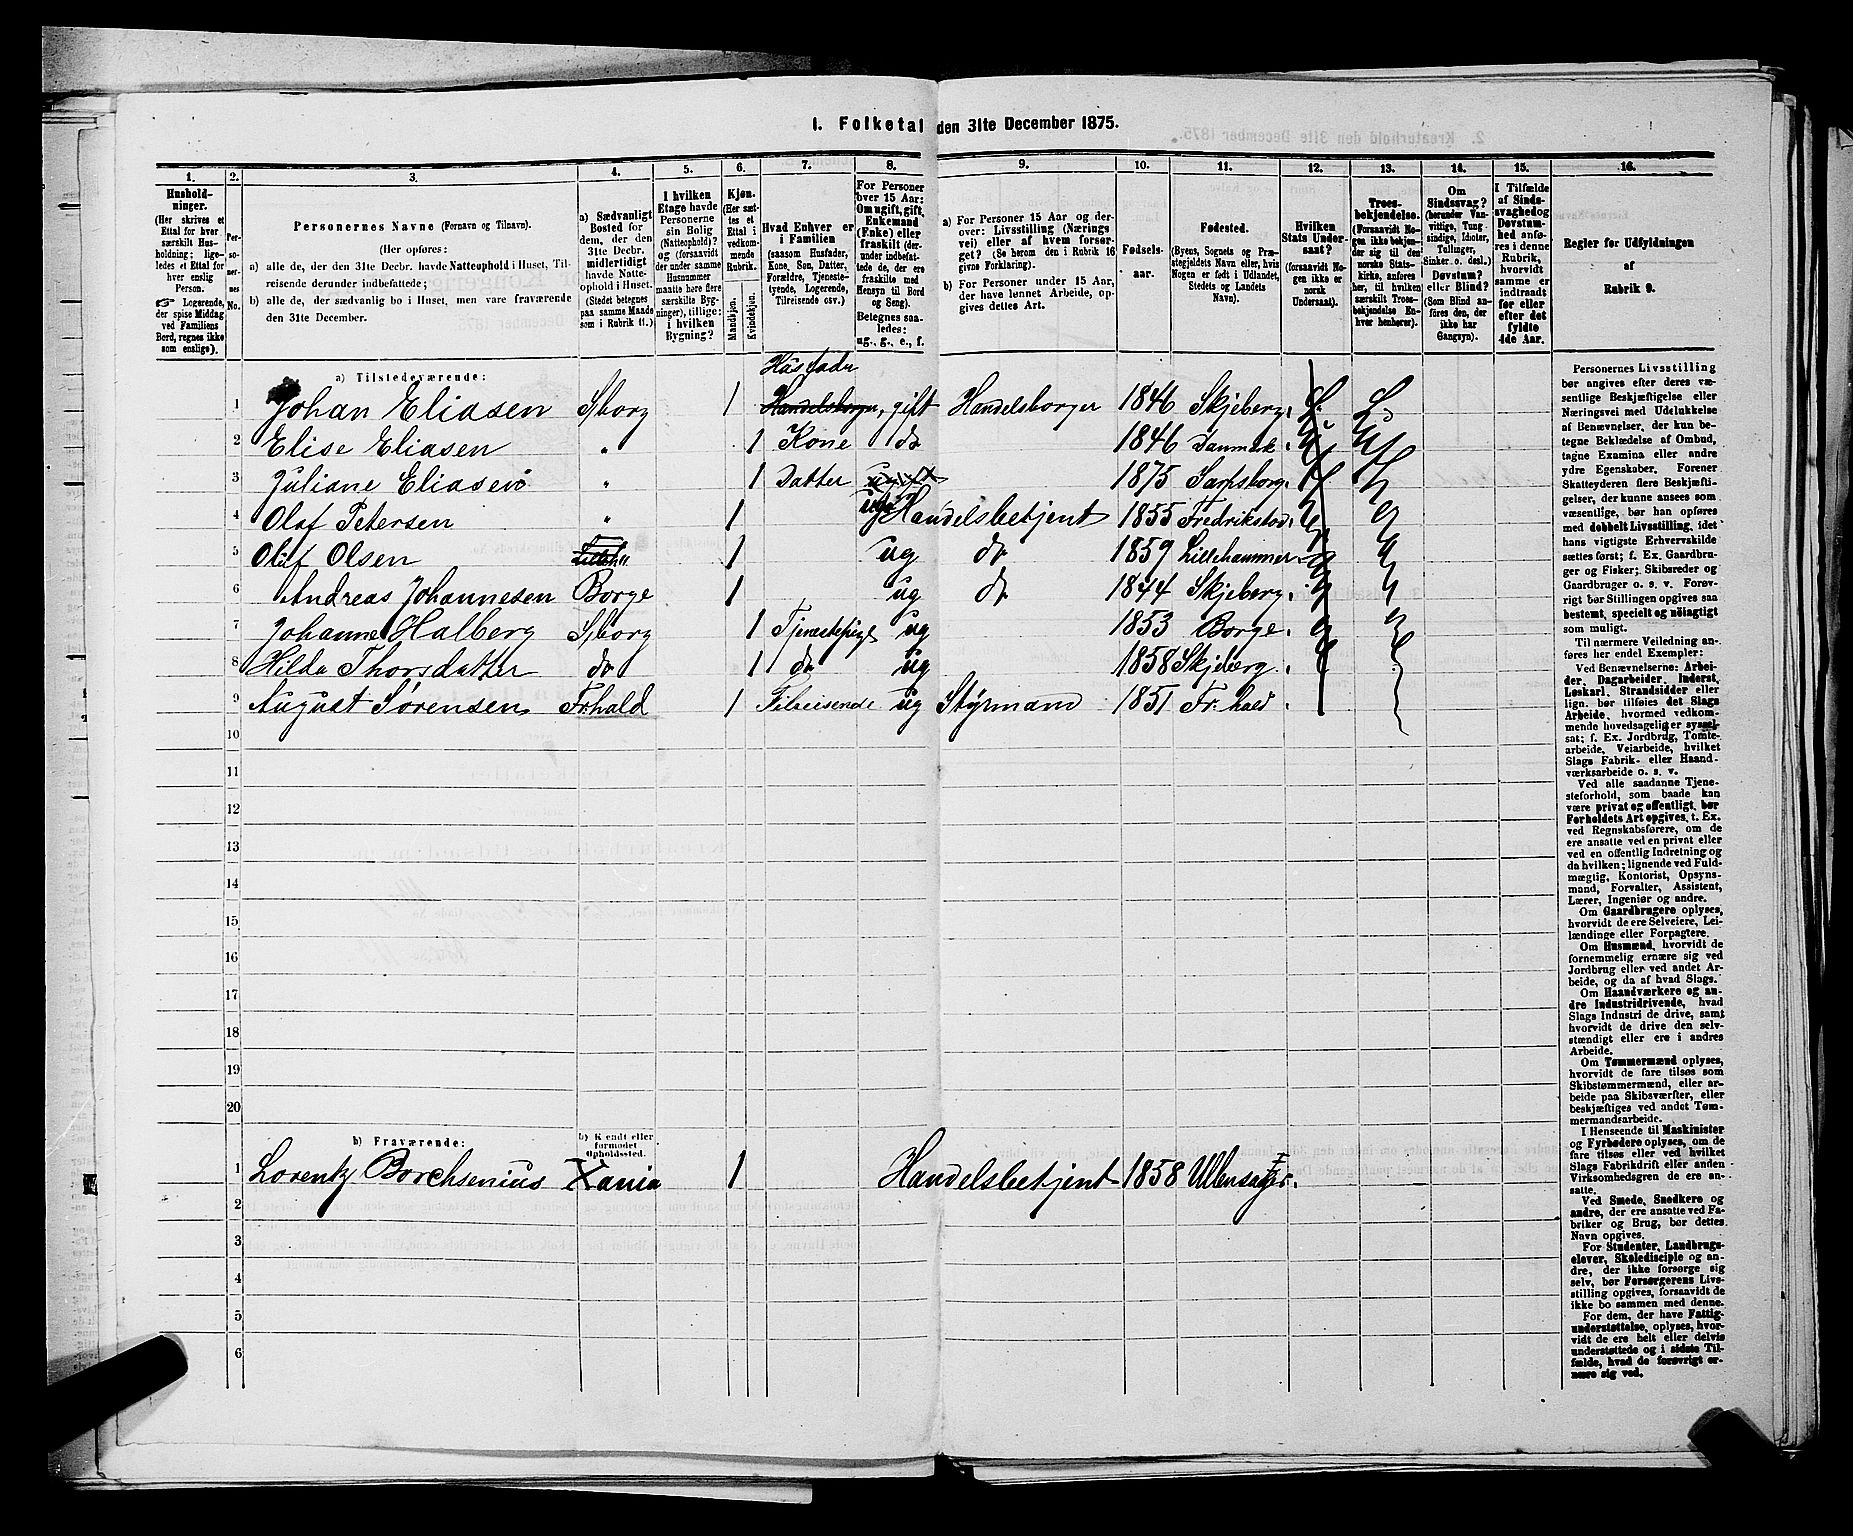 1. Folketal den 31te December 1875.
1. 2. 3. 4. 5. 6. 7. 8. 9. 10. 11. 12. 13. 14. 15. 16.
Hushold-
ninger.
(Her skrives et
Ettal for hver
særskilt Hus-
holdning; lige-
ledes et Ettal for
hver enslig
Person.
☞ Logerende,
der spise Middag
ved Familiens
Bord, regnes ikke
som enslige).
Per-
so-
ner-
nes
No.
Personernes Navne (Fornavn og Tilnavn).
(Her opføres:
a) alle de, der den 31te Decbr. havde Natteophold i Huset, Til-
reisende derunder indbefattede;
b) alle de, der sædvanlig bo i Huset, men vare fraværende
den 31te December.
a) Sædvanligt
Bosted for
dem, der den
31te Decbr.
midlertidigt
havde Natte-
ophold i Huset.
(Stedet betegnes
paa samme Maade
som i Rubrik 11.)
I hvilken
Etage havde
Personerne
sin Bolig
(Natteophold)?
og (forsaavidt
der under samme
Husnummer
maatte høre flere
særskilte Byg-
ninger), tillige:
i hvilken
Bygning?
Kjøn.
(Her sæt-
tes et
Ettal i
vedkom-
mende
Rubrik.
Mandkjøn.
Kvindekjøn.
Hvad Enhver er
i Familien
(saasom Husfader,
Kone, Søn, Datter,
Forældre, Tjeneste-
tyende, Logerende,
Tilreisende osv.)
For Personer
over 15 Aar:
Om ugift, gift,
Enkemand
(Enke) eller
fraskilt (der-
under indbefat-
tede de, der ere
fraskilte med
Hensyn til Bord
og Seng).
Betegnes saa-
ledes:
ug., g., e., f.
a) For Personer 15 Aar og der-
over: Livsstilling (Nærings
vei) eller af hvem forsør-
get? (Se herom den i Rubrik 16
givne Forklaring).
b) For Personer under 15 Aar,
der have lønnet Arbeide, op-
gives dettes Art.
Fødsels-
aar.
Fødested.
(Byens, Sognets og Præ-
stegjeldets Navn eller, hvis
Nogen er født i Udlandet,
Stedets og Landets
Navn).
Hvilken
Stats Under-
saat?
(forsaavidt No-
gen ikke er
norsk
Undersaat).
Troes-
bekjendelse.
(Forsaavidt No-
gen ikke bekjen-
der sig til den
norske Stats-
kirke, anføres
her, til hvilken
særskilt Troes-
bekjendelse En-
hver henhører).
Om
Sindssvag?
(herunder Van-
vittige, Tung
sindige, Idioter,
Tullinger,
Sinker o. desl.)
Døvstum?
eller Blind?
(Som Blind an-
føres den, der
ikke har
Gangsyn).
I Tilfælde
af Sinds-
svaghed og
Døvstum-
hed anfø-
res i denne
Rubrik,
hvorvidt
samme er
indtraadt
før eller
efter det
fyldte
4de Aar.
Regler for Udfyldningen
af
Rubrik 9.
a) Tilstedeværende:
Husfader
1 Johan Eliasen Sborg 1 Handelsborger, gift Handelsborger 1846 Skjeberg. L.
2 Elise Eliasen „ 1 Kone do 1846 Danmark.
3 Juliane Eliasen „ 1 Datter 1875 Sarpsborg.
4 Olaf Petersen „ 1 ug Handelsbetjent 1855 Fredrikstad.
5 Oluf Olsen 1 ug do 1859 Lillehammer
6 Andreas Johannesen Borge 1 ug do 1844 Skjeberg.
7 Johanne Halberg Sborg 1 Tjenestepige ug 1853 Borge.
8 Hilda Thorsdatter do 1 do ug 1858 Skjeberg.
9 August Sørensen Frhald 1 Tilreisende ug Styrmand 1851 Fr. hald
10
11
12
13
14
15
16
17
18
19
20
b) Fraværende:
b) Kjendt eller
formodet
Opholdssted.
1 Lorentz Borchsenius Xania 1 Handelsbetjent 1858 Ullensager.
2
3
4
5
6
Personernes Livsstilling
bør angives efter deres væ-
sentlige Beskjæftigelse eller
Næringsvei med Udelukkelse
af Benævnelser, der kun be-
tegne Beklædelse af Ombud,
tagne Examina eller andre
ydre Egenskaber. Forener
Skatteyderen flere Beskjæfti-
gelser, der kunne ansees som
væsentlige, bør han opføres
med dobbelt Livsstilling, idet
hans vigtigste Erhvervskilde
sættes først; f. Ex. Gaardbru-
ger og Fisker; Skibsreder og
Gaardbruger o. s. v. Forøv-
rigt bør Stillingen opgives saa
bestemt, specielt og nøiagtigt
som muligt.
Til nærmere Veiledning an-
føres her endel Exempler:
Ved Benævnelserne: Arbei-
der, Dagarbeider, Inderst,
Løskarl, Strandsidder eller
lign. bør tilføies det Slags
Arbeide, hvormed vedkom-
mende hovedsagelig er syssel-
sat; f. Ex. Jordbrug, Tomte-
arbeide, Veiarbeide, hvilket
Slags Fabrik- eller Haand-
værksarbeide o. s. v.
Ved alle saadanne Tjene-
steforhold, som baade kan
være privat og offentligt, bør
Forholdets Art opgives, t. Ex.
ved Regnskabsførere, om de
ere ansatte ved en privat eller
ved en offentlig Indretning og
da hvilken; lignende ved Fuld-
mægtig, Kontorist, Opsyns-
mand, Forvalter, Assistent,
Lærer, Ingeniør og andre.
Om Gaardbrugere oplyses,
hvorvidt de ere Selveiere, Lei-
lændinge eller Forpagtere.
Om Husmænd, hvorvidt de
fornemmelig ernære sig ved
Jordbrug eller ved andet Ar-
beide, og da af hvad Slags.
Om Haandværkere og an-
dre Industridrivende, hvad
Slags Industri de drive, samt
hvorvidt de drive den selv-
stændigt eller ere i andres
Arbeide.
Om Tømmermænd oplyses,
hvorvidt de fare tilsøs som
Skibstømmermænd, eller ar-
beide paa Skibsværfter, eller
beskjæftiges ved andet Tøm-
mermandsarbeide.
I Henseende til Maskinister
og Fyrbødere oplyses, om de
fare tilsøs eller ved hvilket
Slags Fabrikdrift eller anden
Virksomhedsgren de ere an-
satte.
Ved Smede, Snedkere og
andre, der ere ansatte ved Fa-
briker og Brug, bør dettes
Navn opgives.
For Studenter, Landbrugs-
elever, Skoledisciple og an-
dre, der ikke forsørge sig
selv, bør Forsørgerens Livs-
stilling opgives, forsaavidt de
ikke bo sammen med denne.
For dem, der have Fattig-
understøttelse, oplyses, hvor-
vidt de ere helt eller delvis
understøttede og i sidste Til-
fælde, hvad de forøvrigt er-
nære sig ved.